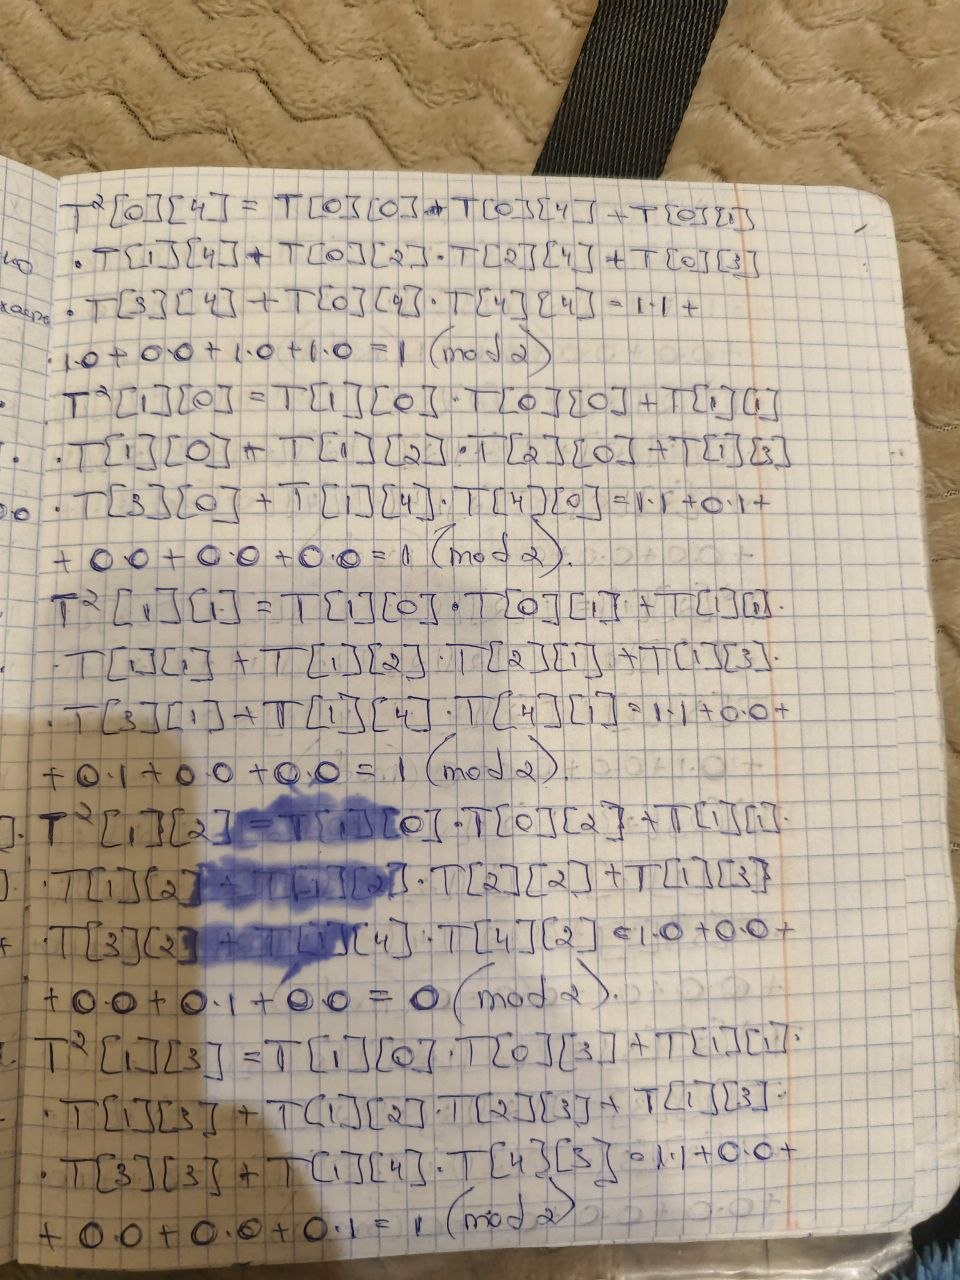 T²[0][4] = T[0][0] + T[0][4] + T[0][1]
· T[1][4] + T[0][2] · T[2][4] + T[0][3]
· T[3][4] + T[0][4] · T[4][4] = 1·1 +
·1.0 + 0.0 + 1.0 + 1.0 = 1 (mod 2)
T²[1][0] = T[1][0] · T[0][0] + T[1][1]
· T[1][0] + T[1][2] · T[2][0] + T[1][3]
· T[3][0] + T[1][4] · T[4][0] = 1·1 + 0·1 +
+ 0.0 + 0.0 + 0.0 = 1 (mod 2).
T²[1][1] = T[1][0] · T[0][1] + T[1][1] ·
· T[1][1] + T[1][2] · T[2][1] + T[1][3] ·
· T[3][1] + T[1][4] · T[4][1] = 1·1 + 0.0 +
+ 0.1 + 0.0 + 0.0 = 1 (mod 2).
T²[1][2] = T[1][0] · T[0][2] + T[1][1] ·
· T[1][2] + T[1][2] · T[2][2] + T[1][3]
· T[3][2] + T[1][4] · T[4][2] = 1.0 + 0.0 +
+ 0.0 + 0.1 + 0.0 = 0 (mod 2).
T²[1][3] = T[1][0] · T[0][3] + T[1][1] ·
· T[1][3] + T[1][2] · T[2][3] + T[1][3] ·
· T[3][3] + T[1][4] · T[4][3] = 1·1 + 0.0 +
+ 0.0 + 0.0 + 0.1 = 1 (mod 2)